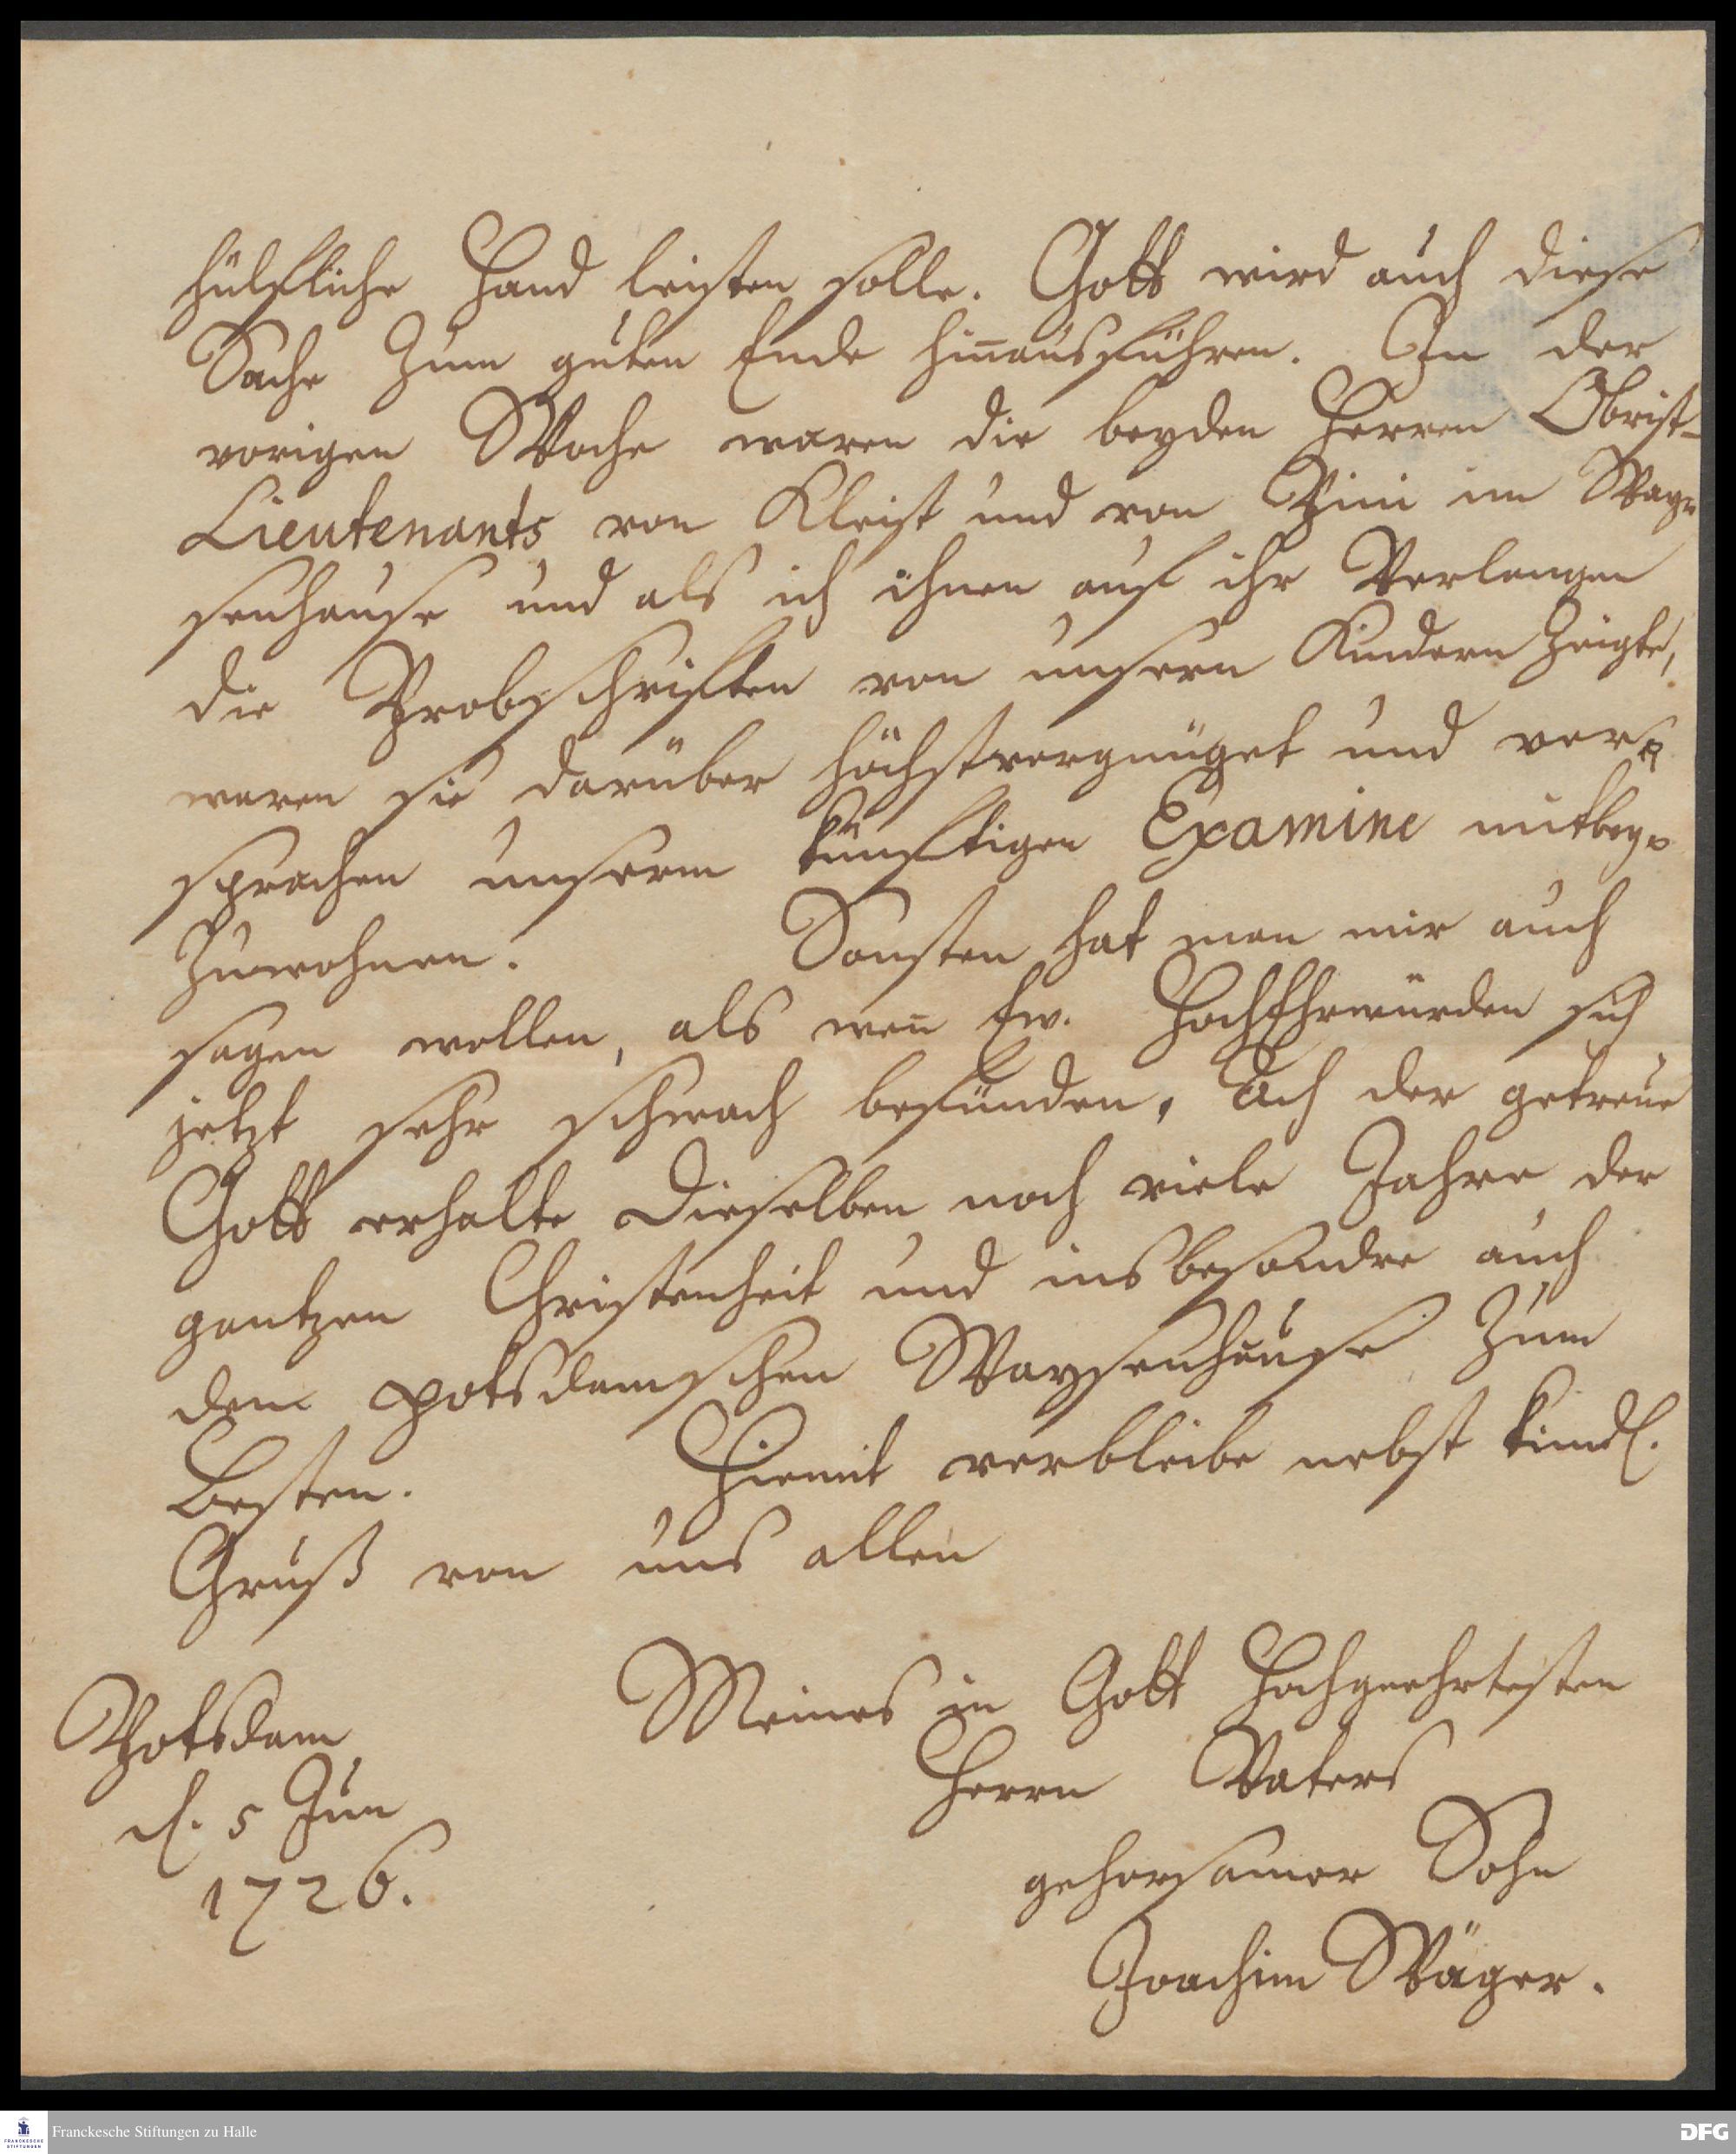 hülfliche Hand leisten solle. Gott wird auch diese
Sache zum guten Ende hin̅ausführen. In der
vorigen Woche waren die beyden Herren Obrist-
Lieutenants von Kleist und von im Way=
senhause und als ich ihnen auf ihr Verlangen
die Probschrifften von unsern Kindern zeigte,
waren sie darüber höchstvergnüget und ver=
sprachen unserm künfftigen Examine mitbey=
zuwohnen. Sonsten hat man mir auch
sagen wollen, als wen̅ Ew. HochEhrwürden sich
jetzt sehr schwach befünden. Ach der getreue
Gott erhalte Dieselben noch viele Jahre der
gantzen Christenheit und insbesondre auch
dem potsdamschen Waysenhause zum
Besten. Hiemit verbleibe nebst kindl.
Gruß von uns allen
Meines in Gott Hochgeehrtesten
Herrn Vaters
gehorsamer Sohn
Joachim Wäger.
Potsdam
d. 5 Jun
1726.
Franckesche Stiftungen zu Halle
FRANCKESCHE
STIFTUNGEN
DFG